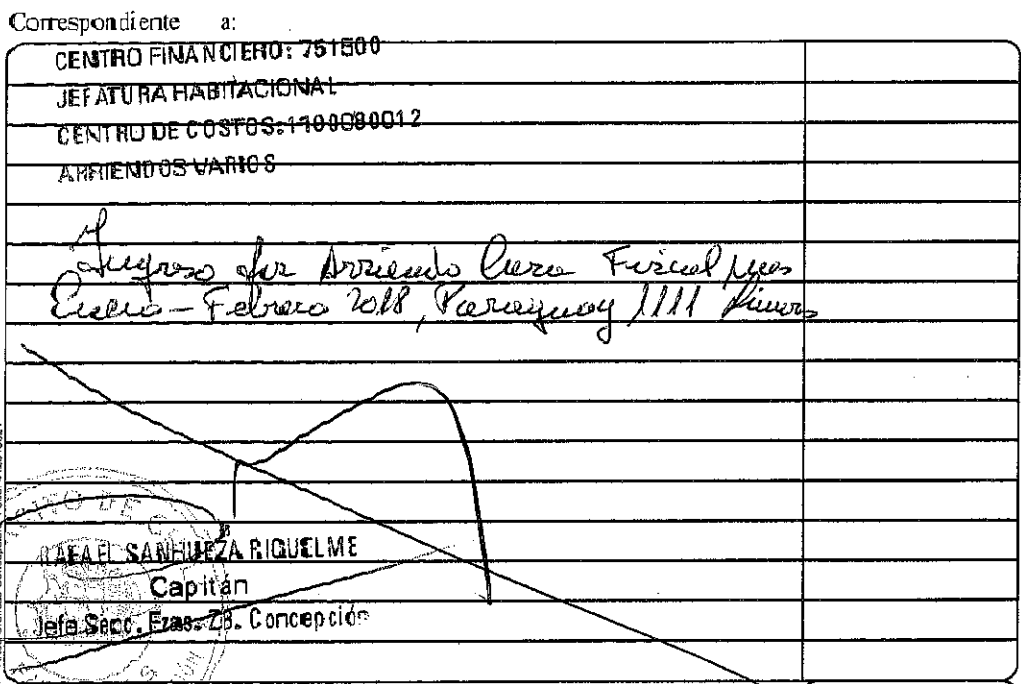 Correspondiente a:
CENTRO FINANCIERO: 751500
JEFATURA HABITACIONAL
CENTRO DE COSTOS: 1100080012
ARRIENDOS VARIOS
Ingreso por Arriendo Casa Fiscal mes
Enero - Febrero 2018, Paraguay 1111
RAFAEL SANHUEZA RIQUELME
Capitán
Jefe Secc. Fzas. ZB. Concepción